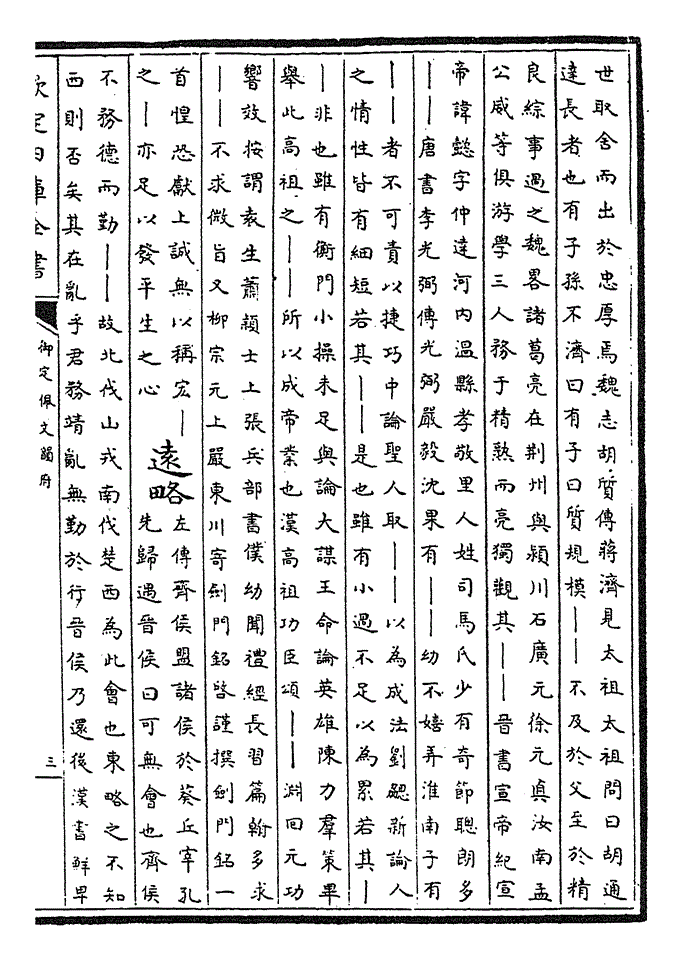 世取舍而出於忠厚焉魏志胡質傳蔣濟見太祖太祖問曰胡通
達長者也有子孫不濟曰有子曰質規模——不及於父至於精
良綜事過之魏畧諸葛亮在荆州與潁川石廣元徐元眞汝南孟
公威等俱游學三人務于精熟而亮獨觀其——晉書宣帝紀宣
帝諱懿字仲達河内温縣孝敬里人姓司馬氏少有奇節聰朗多
——唐書李光弼傳光弼嚴毅沈果有——幼不嬉弄淮南子有
——者不可責以捷巧中論聖人取——以為成法劉勰新論人
之情性皆有細短若其——是也雖有小過不足以為累若其—
—非也雖有衡門小操未足與論大謀王命論英雄陳力羣策畢
舉此高祖之——所以成帝業也漢高祖功臣頌——淵回元功
響效按謂袁生蕭頴士上張兵部書僕幼聞禮經長習篇翰多求
——不求微旨又柳宗元上嚴東川寄劍門銘啓謹撰劍門銘一
首惶恐獻上誠無以稱宏—
之—亦足以發平生之心
遠略
左傳齊侯盟諸侯於葵丘宰孔
先歸遇晉侯曰可無會也齊侯
不務德而勤——故北伐山戎南伐楚西為此會也東略之不知
西則否矣其在亂乎君務靖亂無勤於行晉侯乃還後漢書鮮卑
欽定四庫全書
御定佩文韻府
三